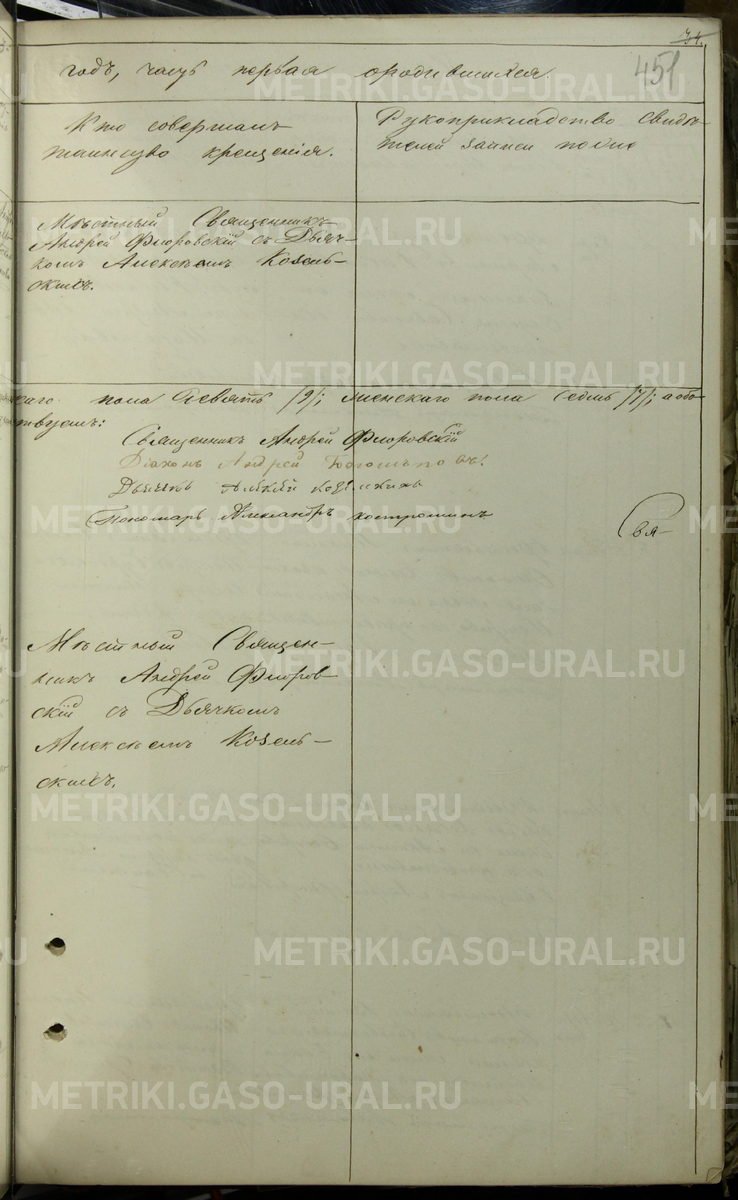 451
годъ, часть первая о родившихся.
Кто совершалъ
таинство крещенія.
Рукоприкладство свидѣ-
телей записи по
Мѣстный Священникъ
Андрей Флоровскій съ Дьяч-
комъ Алексѣемъ Козель-
скихъ.
скаго пола Девять /9/; женскаго пола Седмь /7/; а обо-
ствуемъ:
Священникъ Андрей Флоровскій
Діаконъ Андрей
Дьячекъ
Пономарь Александръ Костроминъ
Свя-
Мѣстный Священ-
никъ Андрей Флоров-
скій съ Дьячкомъ
Алексѣемъ Козель-
скихъ.
METRIKI.GASO-URAL.RU